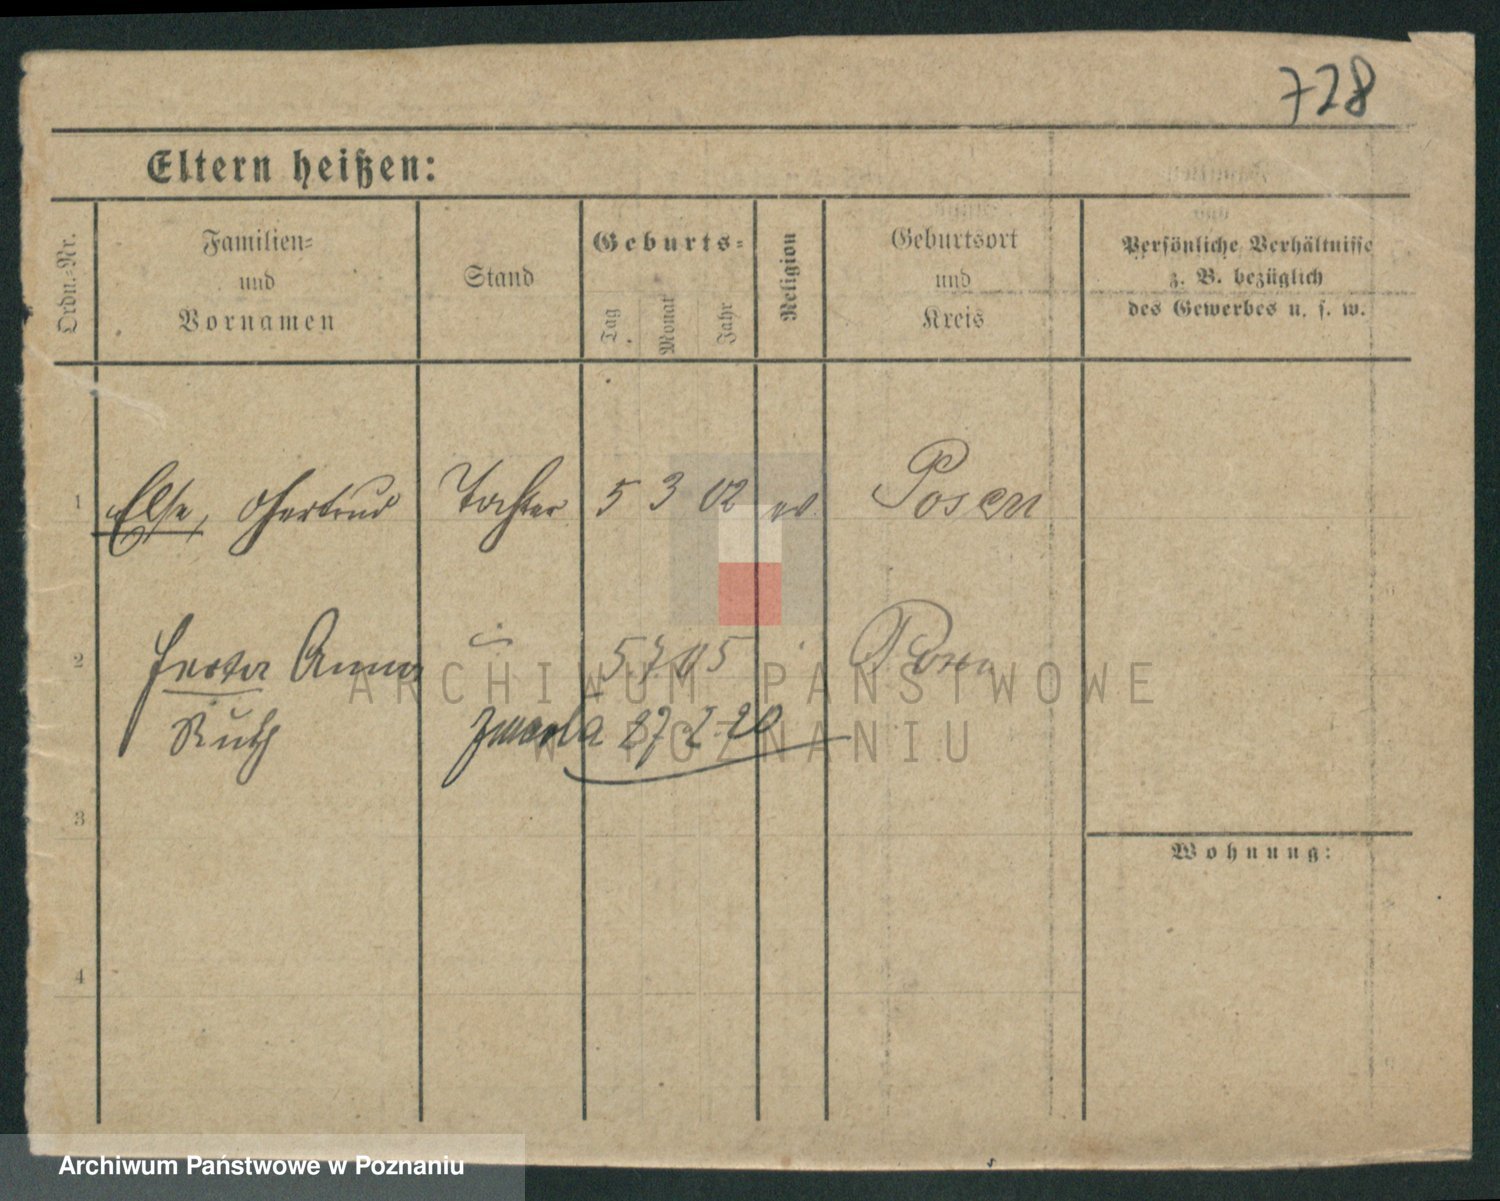 728
Eltern heißen:
Ordn.-Nr.
Familien-
und
Vornamen
Stand
Geburts-
Tag
Monat
Jahr
Religion
Geburtsort
und
Kreis
Persönliche Verhältnisse
z. B. bezüglich
des Gewerbes u. s. w.
1 Else, Gertrud Tochter 5 3 02 ev Posen
2 Herta Anna 5 7 05 Posen
Ruth zmarła 27 2 20
3
Wohnung:
4
ARCHIWUM PAŃSTWOWE
W POZNANIU
Archiwum Państwowe w Poznaniu